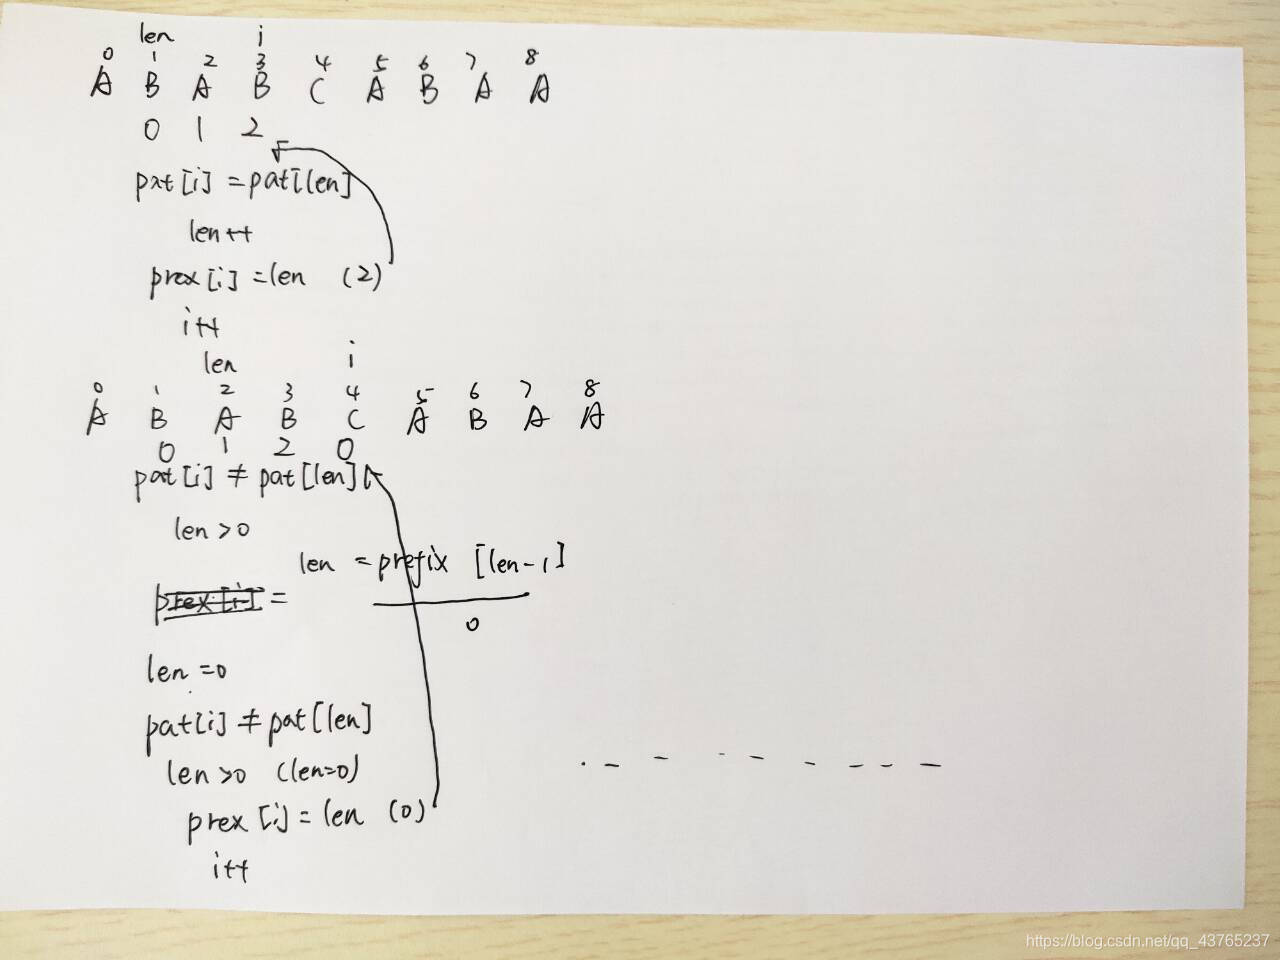 len i
0 1 2 3 4 5 6 7 8
A B A B C A B A A
0 1 2
pat[i] = pat[len]
len++
prex[i] = len (2)
i++
len i
0 1 2 3 4 5 6 7 8
A B A B C A B A A
0 1 2 0
pat[i] ≠ pat[len]
len > 0
len = prefix [len-1]
prex[i] =
0
len = 0
pat[i] ≠ pat[len]
len > 0 (len=0)
prex[i] = len (0)
i++
https://blog.csdn.net/qq_43765237